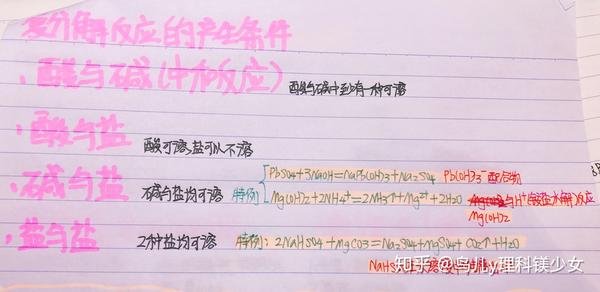 复分解反应的产生条件
酸与碱(中和反应) 酸与碱中至少有一种可溶
酸与盐 酸可溶,盐可以不溶
碱与盐 碱与盐均可溶 特例
PbSO4+3NaOH=NaPb(OH)3+Na2SO4 Pb(OH)3⁻配合物
Mg(OH)2+2NH4⁺=2NH3↑+Mg²⁺+2H2O 与H⁺(铵盐水解)反应
Mg(OH)2
盐与盐 2种盐均可溶 特例: 2NaHSO4+MgCO3=Na2SO4+MgSO4+CO2↑+H2O
NaHS
知乎 @
理科镁少女